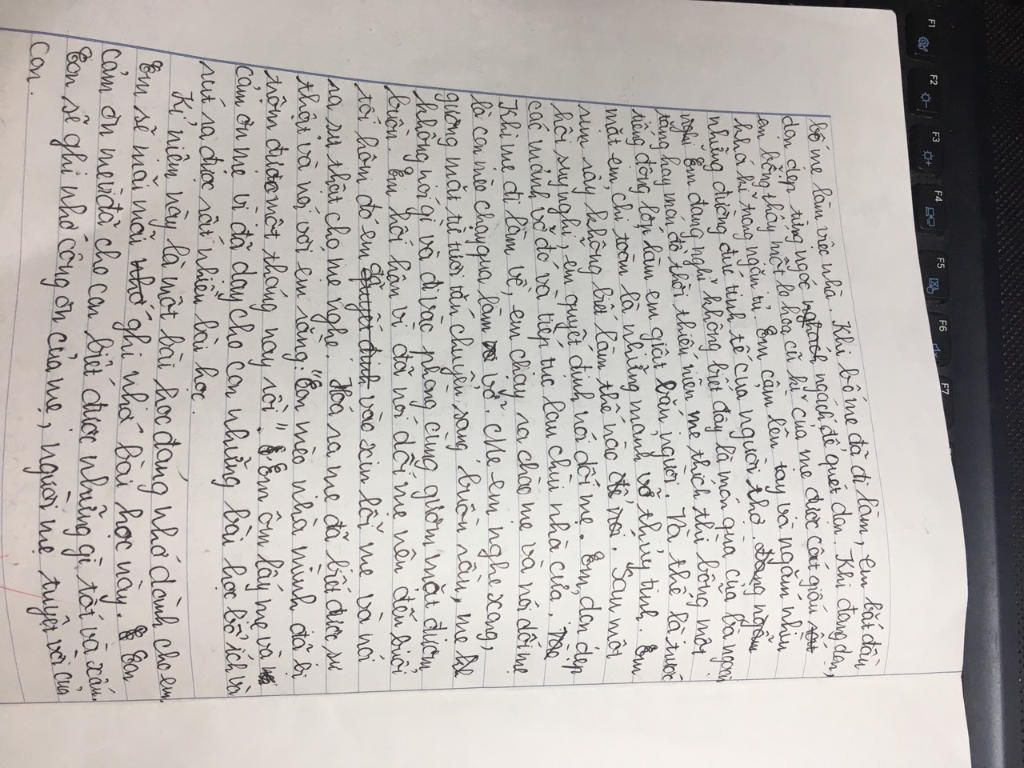 bố mẹ làm việc nhà. Khi bố mẹ đã đi làm, em bắt đầu
dọn dẹp từng ngóc ngách để quét dọn. Khi đang dọn,
em bỗng thấy một lọ hoa cũ kĩ của mẹ được cất giấu
khá kĩ trong ngăn tủ. Em cầm lên tay và ngắm nhìn
những đường đức tinh tế của người thợ. Đang ngắm
nghĩ. Em đang nghĩ không biết đây là món quà của bà ngoại
tặng hay món đồ thời thiếu niên mẹ thích thì bỗng một
tiếng động lớn làm em giật bắn người. Và thế là trước
mắt em, chỉ toàn là những mảnh vỡ thủy tinh. Em
run rẩy không biết làm thế nào. Sau một
hồi suy nghĩ, em quyết định nói dối mẹ. Em, dọn dẹp
các mảnh vỡ đó và tiếp tục lau chùi nhà cửa.
Khi mẹ đi làm về, em chạy ra chào mẹ và nói dối mẹ
là con mèo chạy qua làm vỡ. Mẹ em nghe xong,
gương mặt từ tươi tắn chuyển sang buồn rầu, mẹ
không nói gì và đi vào phòng cùng gươm mặt đượm
buồn. Em hối hận vì đã nói dối mẹ nên đến buổi
tối hôm đó em vào xin lỗi mẹ và nói
ra sự thật cho mẹ nghe. Hoá ra mẹ đã biết được sự
thật và nói với em rằng: "Con mèo nhà mình đã bị
trộm được một tháng nay rồi". Em ôm lấy mẹ và
cảm ơn mẹ vì đã dạy cho con những bài học bổ ích và
rút ra được rất nhiều bài học.
Kỉ niệm này là một bài học đáng nhớ dành cho em.
Em sẽ mãi mãi ghi nhớ bài học này. Con
cảm ơn mẹ vì đã cho con biết được những gì tốt và xấu.
Con sẽ ghi nhớ công ơn của mẹ, người mẹ tuyệt vời của
con.